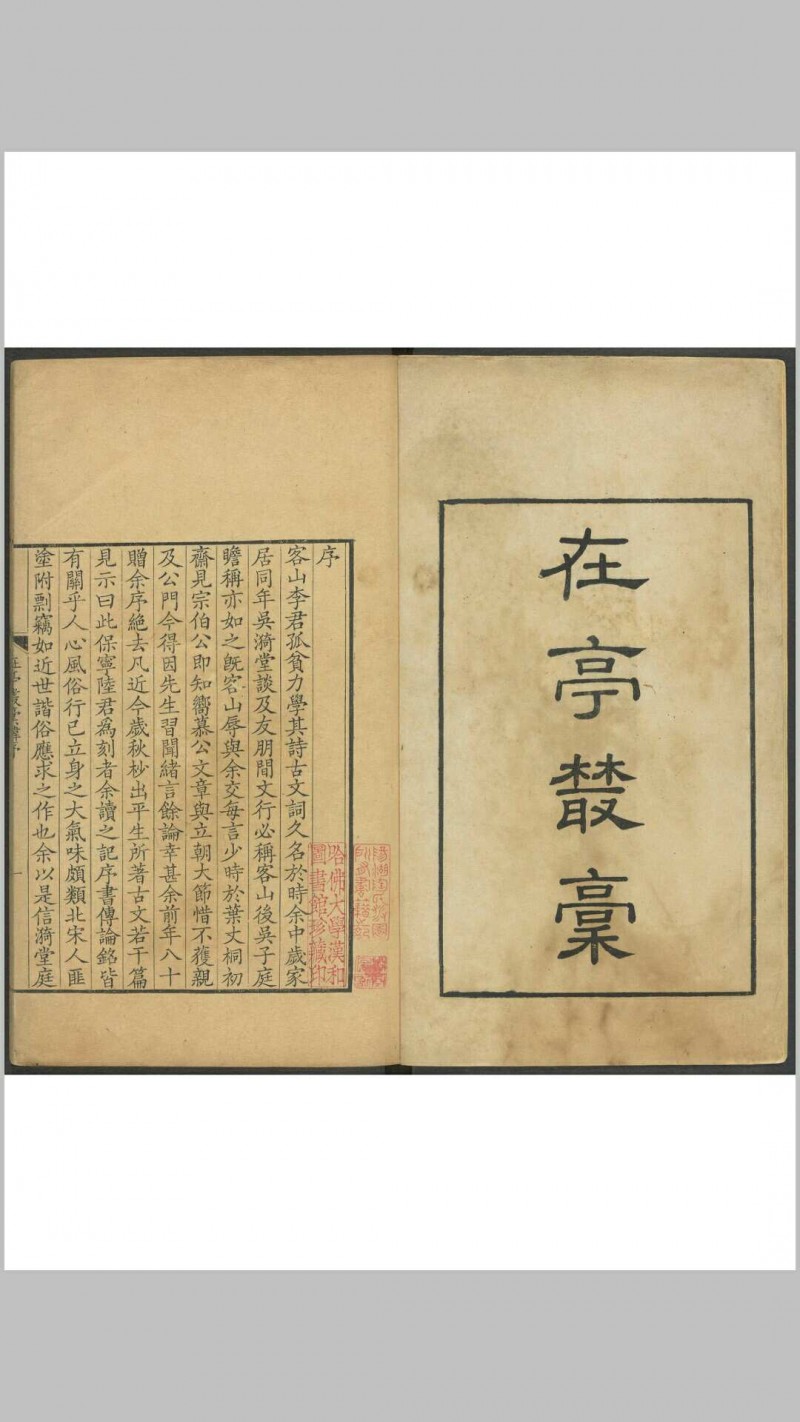 在亭叢稾
序
客山李君孤貧力學其詩古文詞久名於時余中歲家
居同年吳漪堂談及友朋間文行必稱客山後吳子庭
瞻稱亦如之旣客山辱與余交每言少時於葉丈桐初
齋見宗伯公即知嚮慕公文章與立朝大節惜不獲親
及公門今得因先生習聞緒言餘論幸甚余前年八十
贈余序絶去凡近今歲秋杪出平生所著古文若干篇
見示曰此保寧陸君爲刻者余讀之記序書傳論銘皆
有關乎人心風俗行己立身之大氣味頗類北宋人匪
塗附剽竊如近世諧俗應求之作也余以是信漪堂庭
在亭叢稾序
一
哈佛大學漢和
圖書館珍藏印